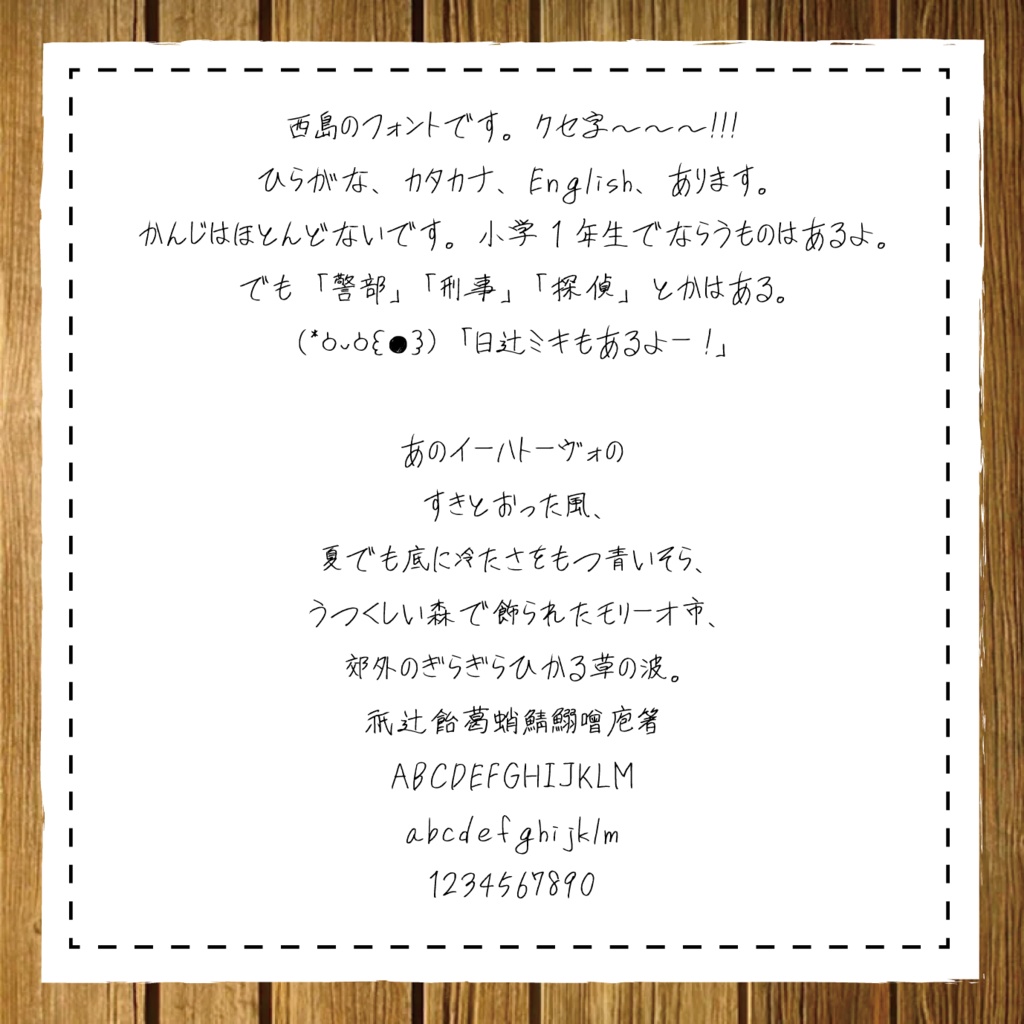 西島のフォントです。クセ字～～～!!!
ひらがな、カタカナ、English、あります。
かんじはほとんどないです。小学1年生でならうものはあるよ。
でも「警部」「刑事」「探偵」とかはある。
(*ㆁᴗㆁ{●})「日辻ミキもあるよー!」
あのイーハトーヴォの
すきとおった風、
夏でも底に冷たさをもつ青いそら、
うつくしい森で飾られたモリーオ市、
郊外のぎらぎらひかる草の波。
祇辻飴葛蛸鯖鰯噌庖箸
ABCDEFGHIJKLM
abcdefghijklm
1234567890